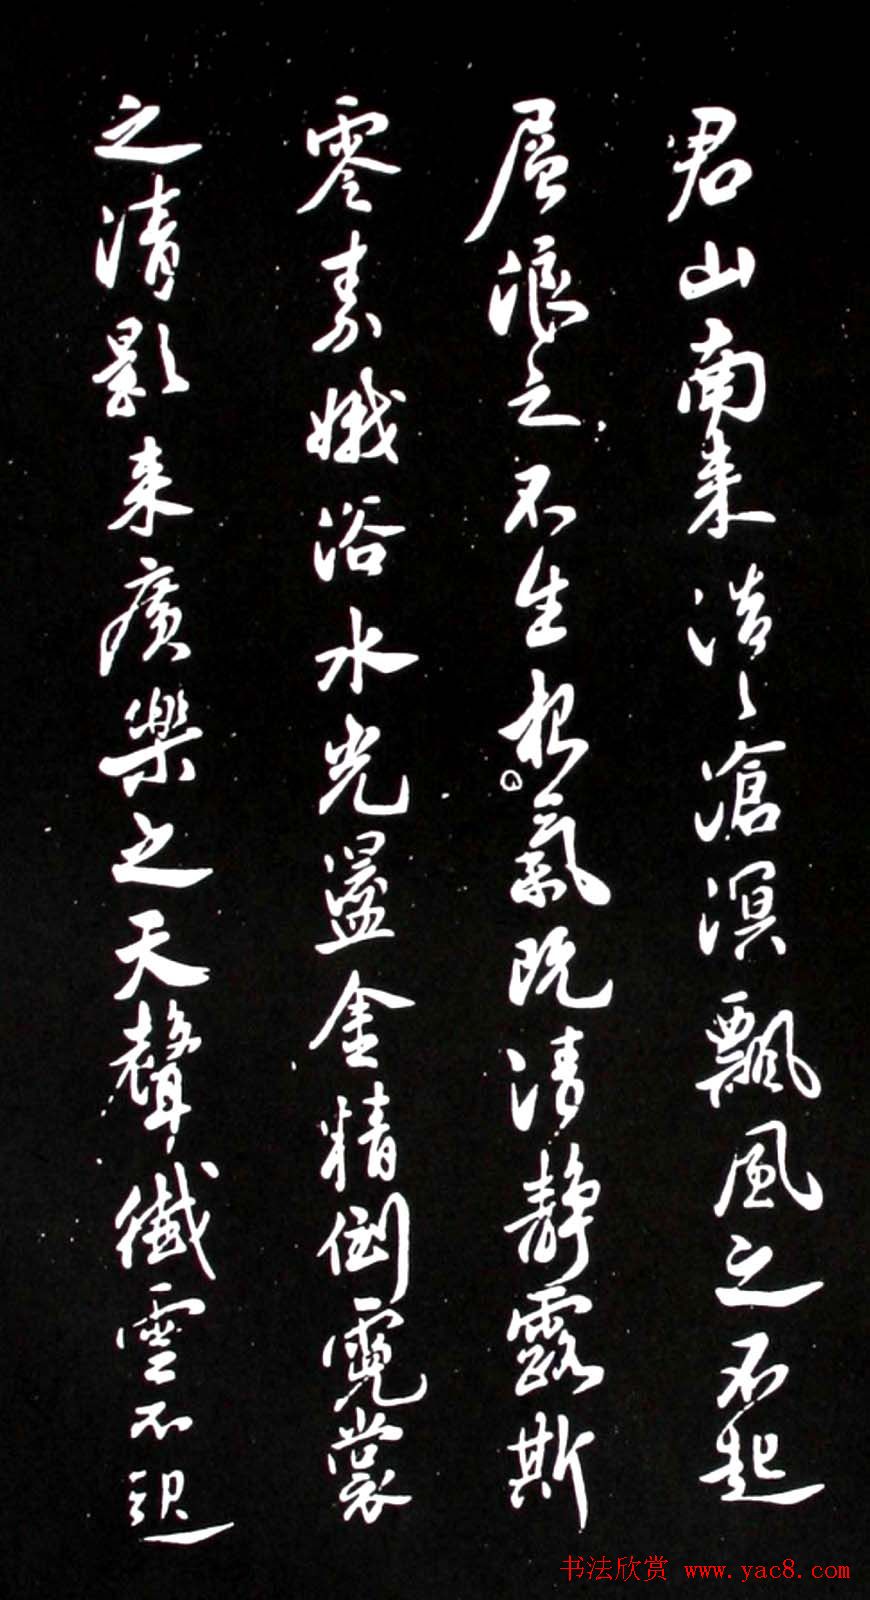 君山南来浩〻滄溟飄風之不起
層浪之不生氣既清静露斯
零素娥浴水光盪金精倒霓裳
之清影来廣樂之天聲纖雲不
书法欣赏 www.yac8.com